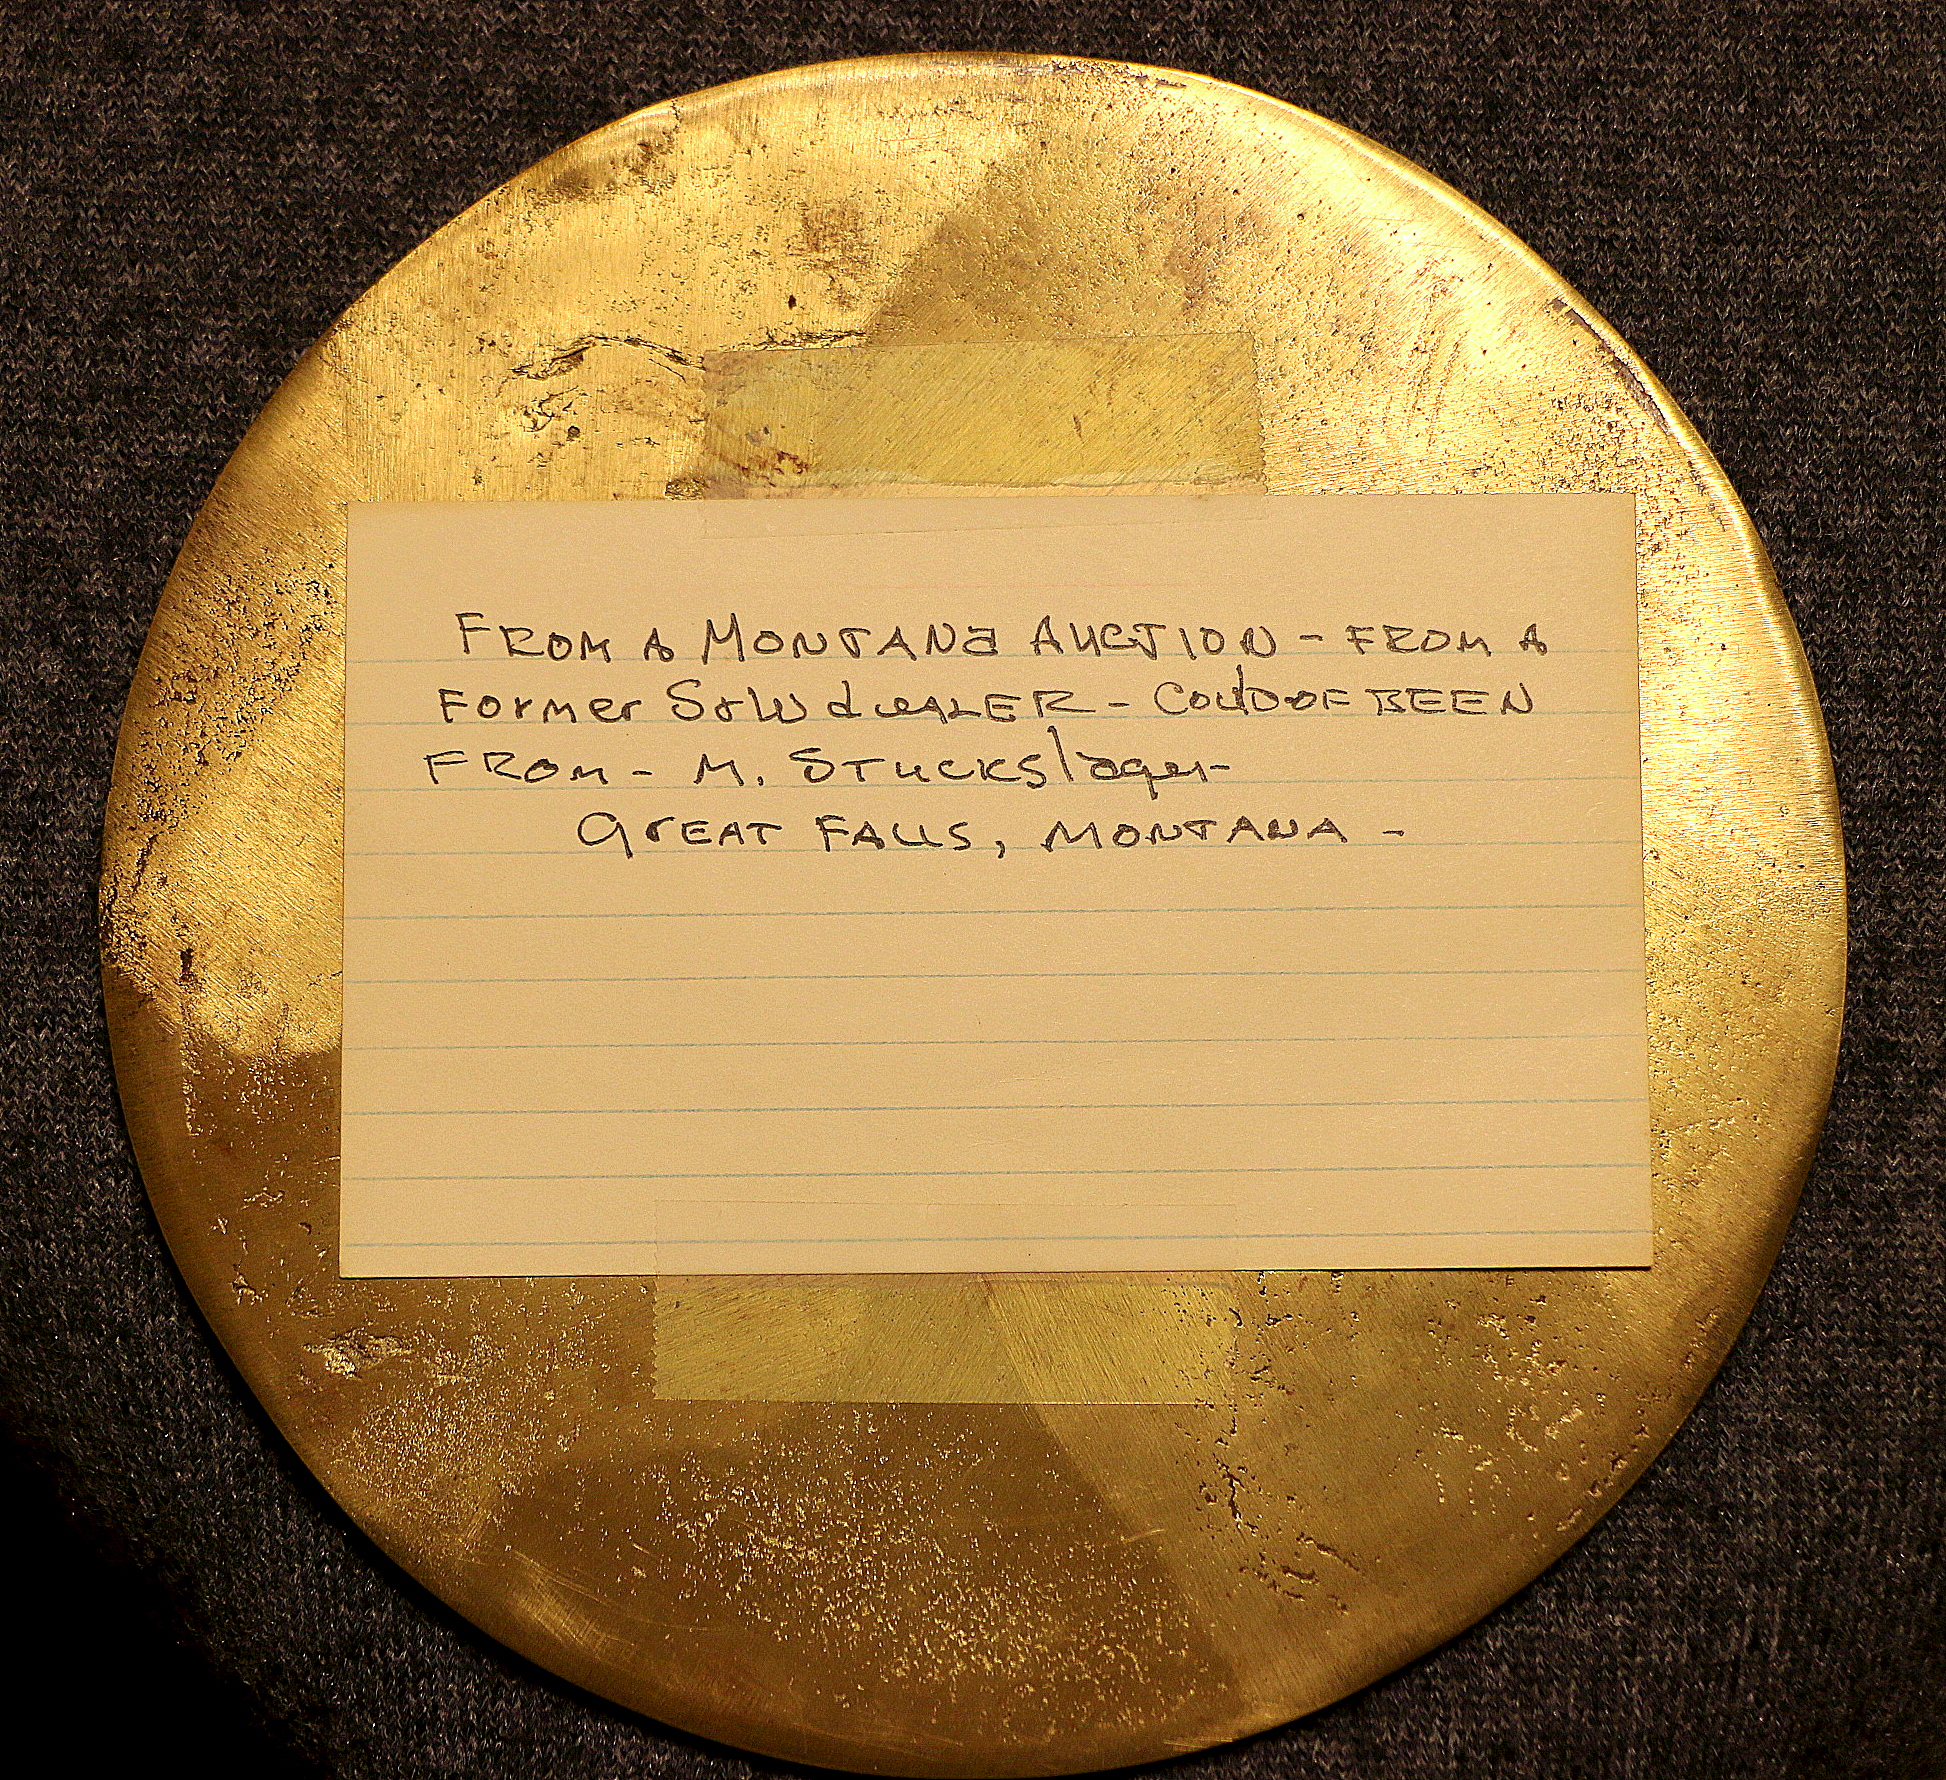 FROM A MONTANA AUCTION - FROM A
Former S&W dealer - COULD OF BEEN
FROM - M. STUCKSlager
GREAT FALLS, MONTANA -